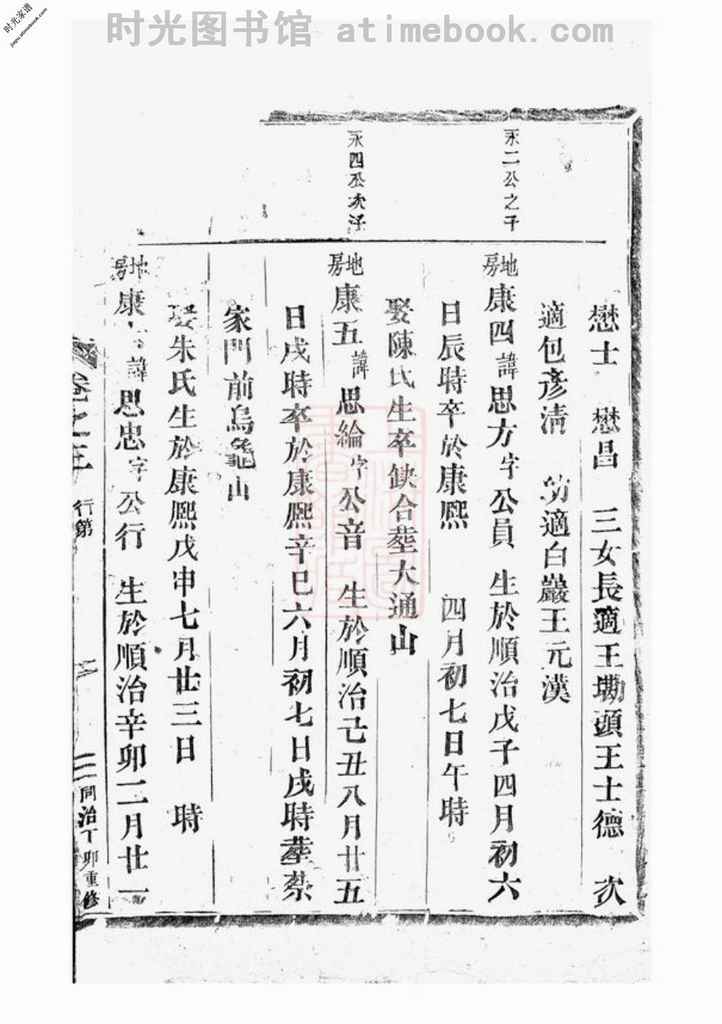 时光图书馆 atimebook.com
时光家谱
懋士 懋昌 三女長適王墈頭王士德 次
適包彥淸 幼適白巖王元漢
永二公之子
地房康四諱思方字公員 生於順治戊子四月初六
日辰時卒於康熙 四月初七日午時
娶陳氏生卒缺合塟大通山
永四公次子
地房康五諱思綸字公音 生於順治己丑八月廿五
日戌時卒於康熙辛巳六月初七日戌時塟蔡
家門前烏龜山
娶朱氏生於康熙戊申七月廿三日 時
地房康 諱思忠字公行 生於順治辛卯二月廿一
卷之三 行第 同治丁卯重修